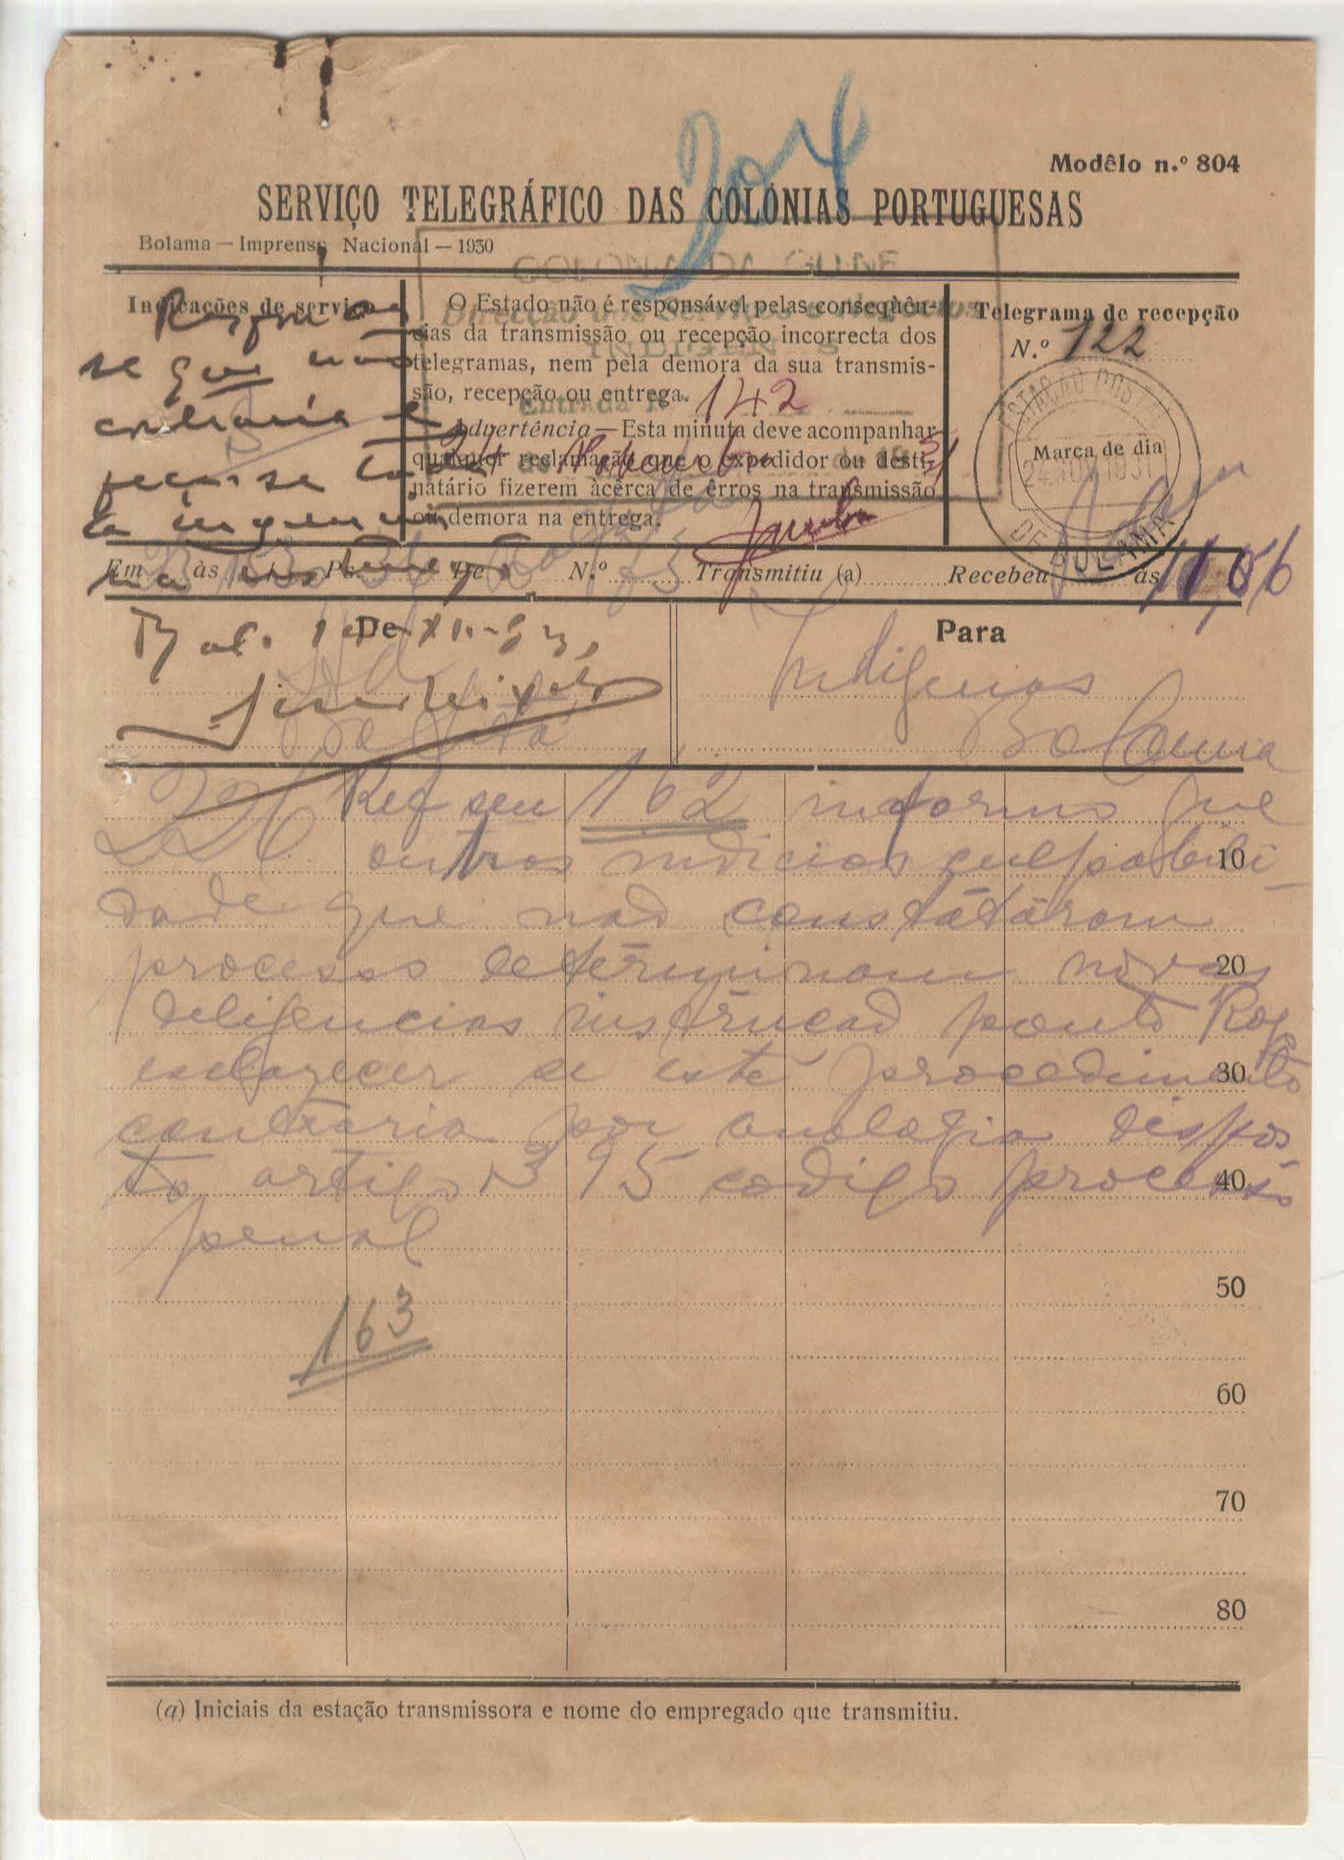 204
Modêlo n.º 804
SERVIÇO TELEGRÁFICO DAS COLÓNIAS PORTUGUESAS
Bolama — Imprensa Nacional — 1930
COLONIA DA GUINÉ
INDIGENAS
Entrada N.º 142
24 de Novembro de 1931
Indicações de serviço
Responda
se que não
contraria e
peça-se to
da urgencia
O Estado não é responsável pelas consequên-
cias da transmissão ou recepção incorrecta dos
telegramas, nem pela demora da sua transmis-
são, recepção ou entrega.
Advertência — Esta minuta deve acompanhar
qualquer reclamação que o expedidor ou desti-
natário fizerem àcêrca de êrros na transmissão
ou demora na entrega.
Telegrama de recepção
N.º 122
ESTAÇÃO POSTAL
Marca de dia
24 NOV 1931
DE BOLAMA
Em às P. De N.º Transmitiu (a) Recebeu às 11,56
De
Para
Indigenas
Bolama
Ref seu 162 informo que
outros indicios culpabili
dade que nao constataram
processo determinam novas
diligencias instrucao ponto Rogo
esclarecer se este procedimento
contraria por analogia dispos
to artigo 395 codigo processo
penal
163
10
20
30
40
50
60
70
80
(a) Iniciais da estação transmissora e nome do empregado que transmitiu.